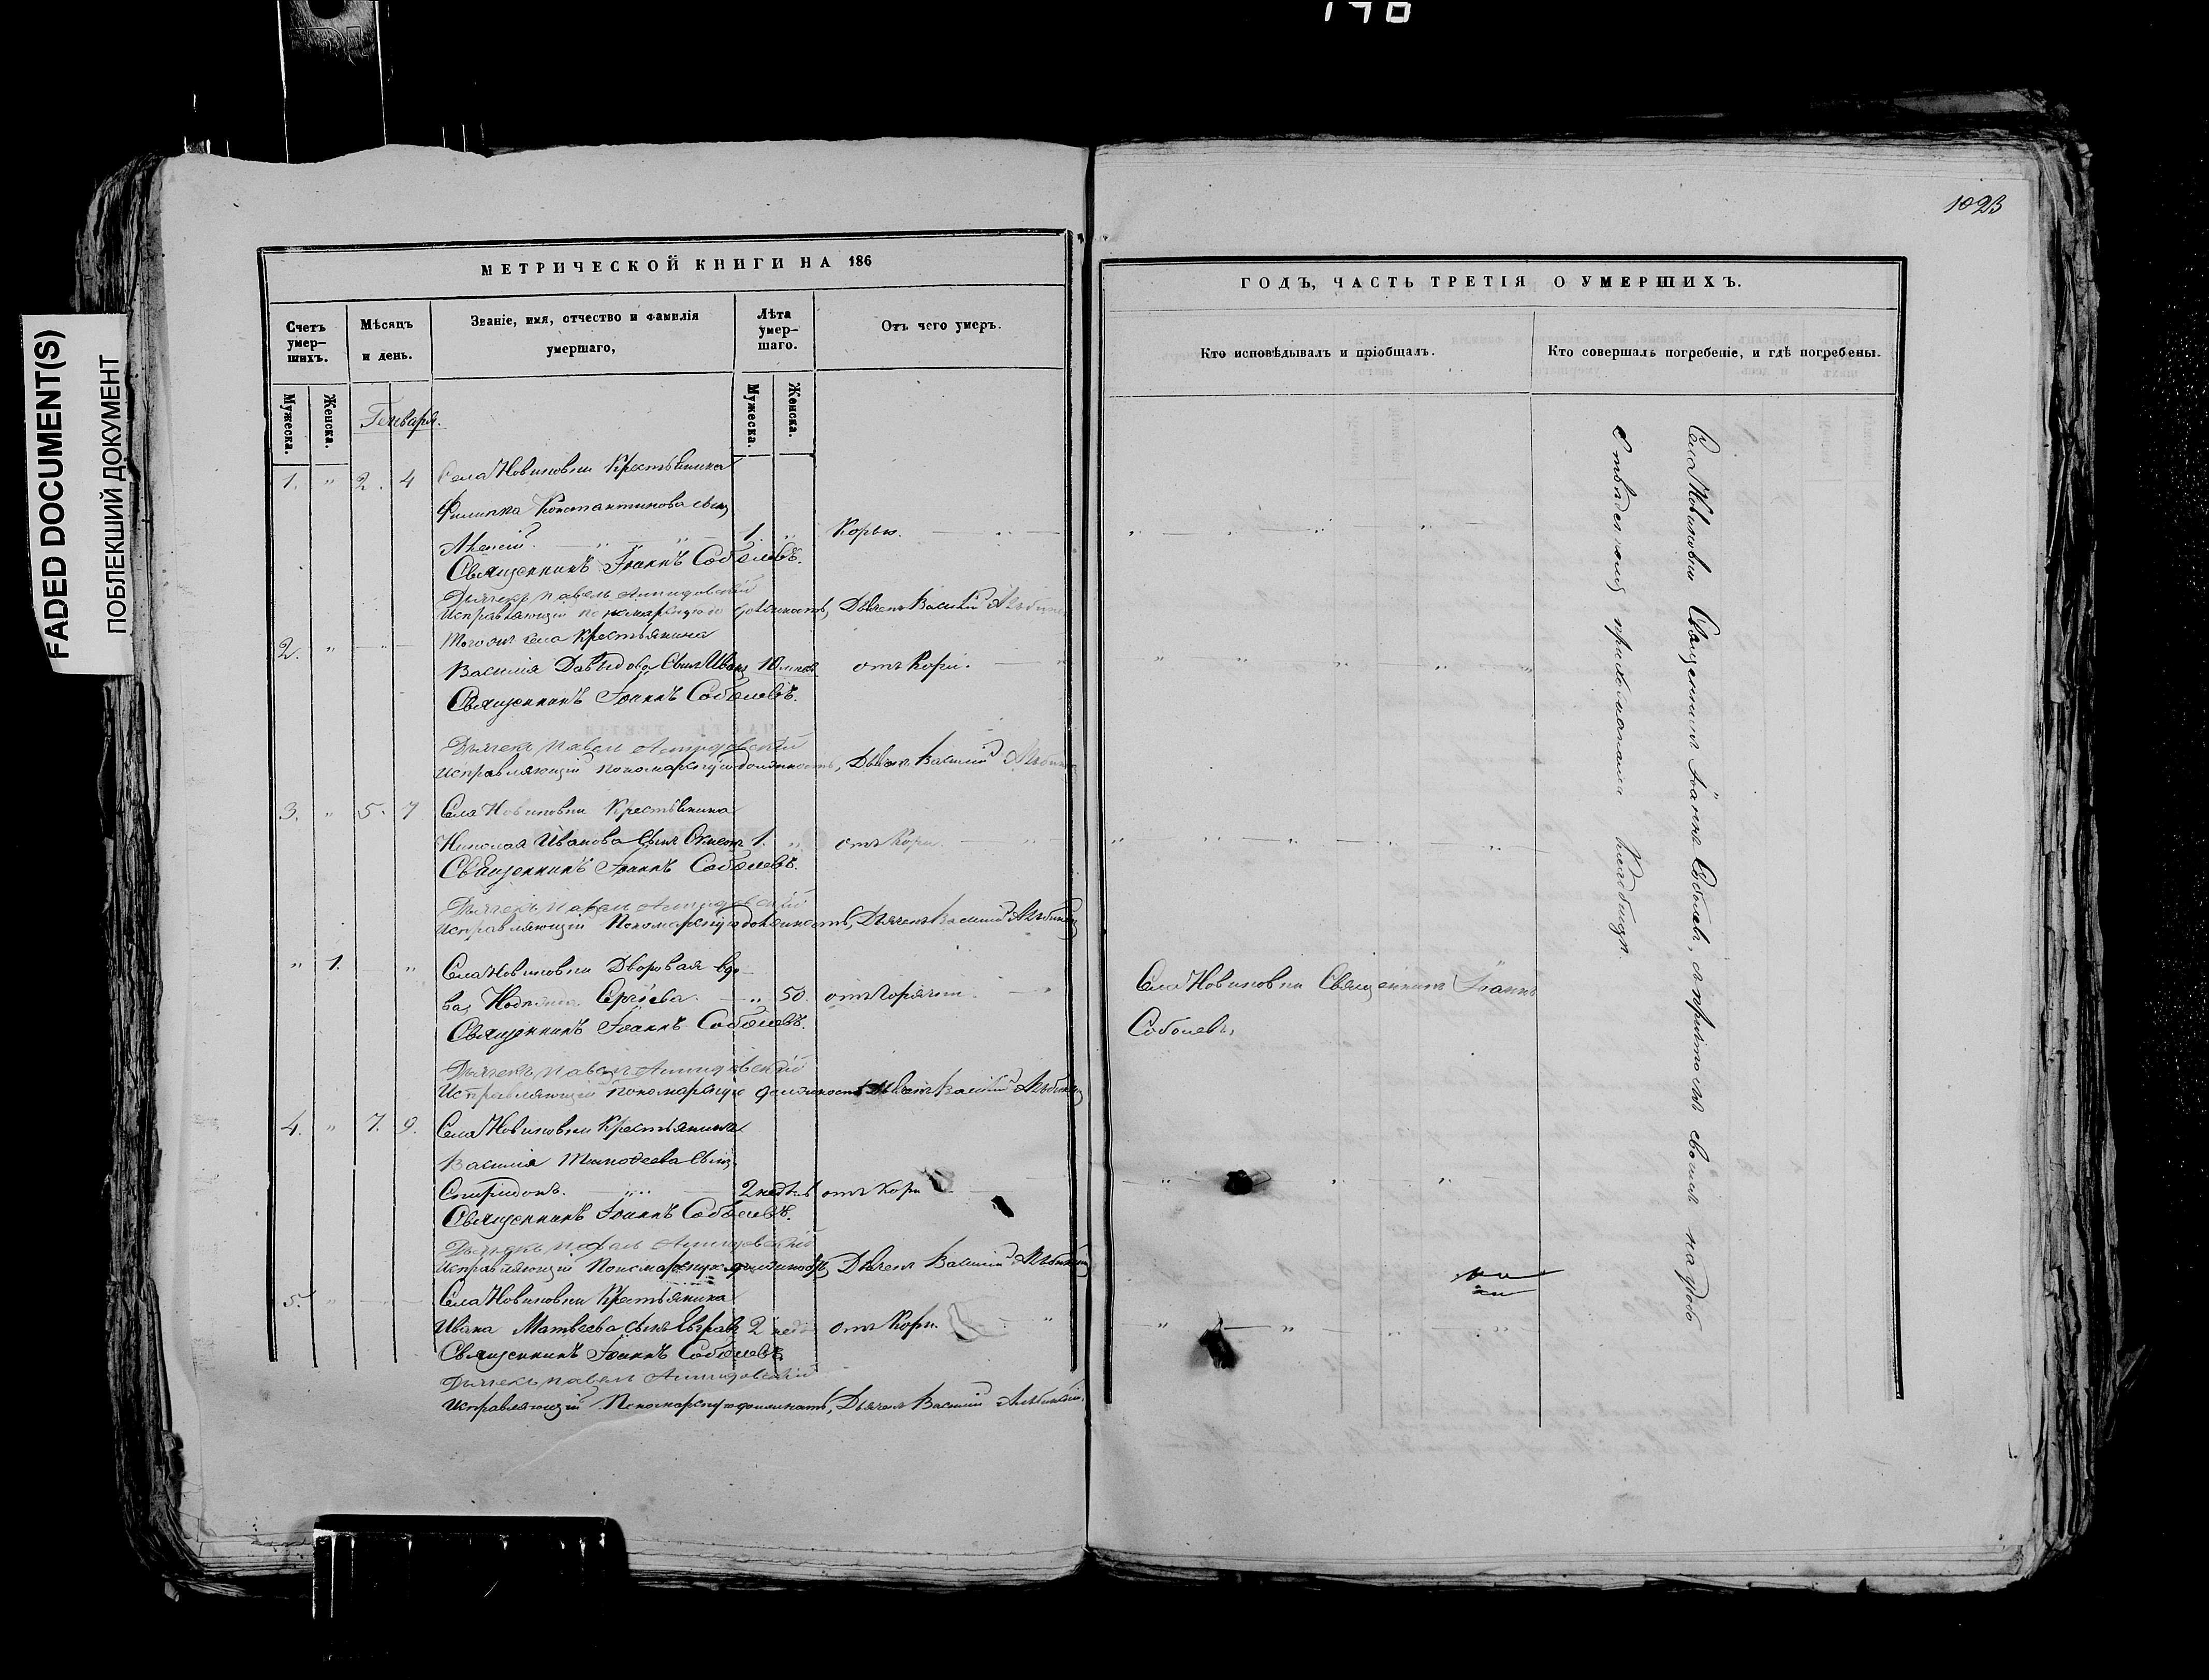 198
FADED DOCUMENT(S)
ПОБЛЕКШИЙ ДОКУМЕНТ
МЕТРИЧЕСКОЙ КНИГИ НА 186
Счетъ умер–шихъ.
Мѣсяцъ и день.
Званіе, имя, отчество и фамилія умершаго,
Лѣта умер–шаго.
Отъ чего умеръ.
Мужеска.
Женска.
Мужеска.
Женска.
Генваря.
1. " 2. 4 Села Новиковки Крестьянина
Филиппа Константинова сынъ
Алексій. 1. " Корью.
Священникъ Іоаннъ Соболевъ.
Дьячекъ Павелъ
Исправляющій пономарскую должность, Дьячекъ Василій
2. " Тогоже села Крестьянина
Василія Давыдова сынъ Иванъ 10 отъ Кори.
Священникъ Іоаннъ Соболевъ.
Дьячекъ Павелъ
Исправляющій пономарскую должность, Дьячекъ Василій
3. " 5. 7 Села Новиковки Крестьянина
Николая Иванова сынъ 1. " отъ Кори.
Священникъ Іоаннъ Соболевъ.
Дьячекъ Павелъ
Исправляющій Пономарскую должность, Дьячекъ Василій
" 1. " Села Новиковки Дворовая вдо–
ва, Сергіева. " 50. отъ горячки.
Священникъ Іоаннъ Соболевъ.
Дьячекъ Павелъ
Исправляющій пономарскую должность Дьячекъ Василій
4. " 7. 9. Села Новиковки Крестьянина
Василія Тимофеева сынъ
Спиридонъ. 2 недѣль отъ Кори
Священникъ Іоаннъ Соболевъ.
Дьячекъ Павелъ
Исправляющій Пономарскую должность, Дьячекъ Василій
5. " Села Новиковки Крестьянина
Ивана Матвеева сынъ Евграфъ 2 отъ Кори.
Священникъ Іоаннъ Соболевъ.
Дьячекъ Павелъ
Исправляющій Пономарскую должность, Дьячекъ Василій
1023
ГОДЪ, ЧАСТЬ ТРЕТІЯ О УМЕРШИХЪ.
Кто исповѣдывалъ и пріобщалъ.
Кто совершалъ погребеніе, и гдѣ погребены.
Села Новиковки Священникъ Іоаннъ
Соболевъ,
Села Новиковки Священникъ Іоаннъ Соболевъ, съ причтомъ своимъ на
отведенномъ приходскомъ кладбищѣ.